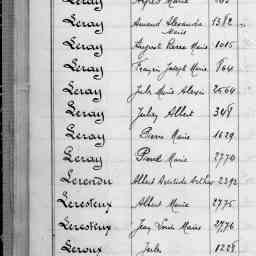 Leray Alfred Marie
Leray Armand Alexandre 1382
Marie
Leray Auguste Pierre Marie 1015
Leray François Joseph Marie 864
Leray Jules Marie Alexis 2564
Leray Julien Albert 348
Leray Pierre Marie 1629
Leray Pierre Marie 2770
Lerendu Albert Aristide Arthur 2392
Leresteux Albert Marie 2775
Leresteux Jean Louis Marie 2776
Leroux Jules 1228